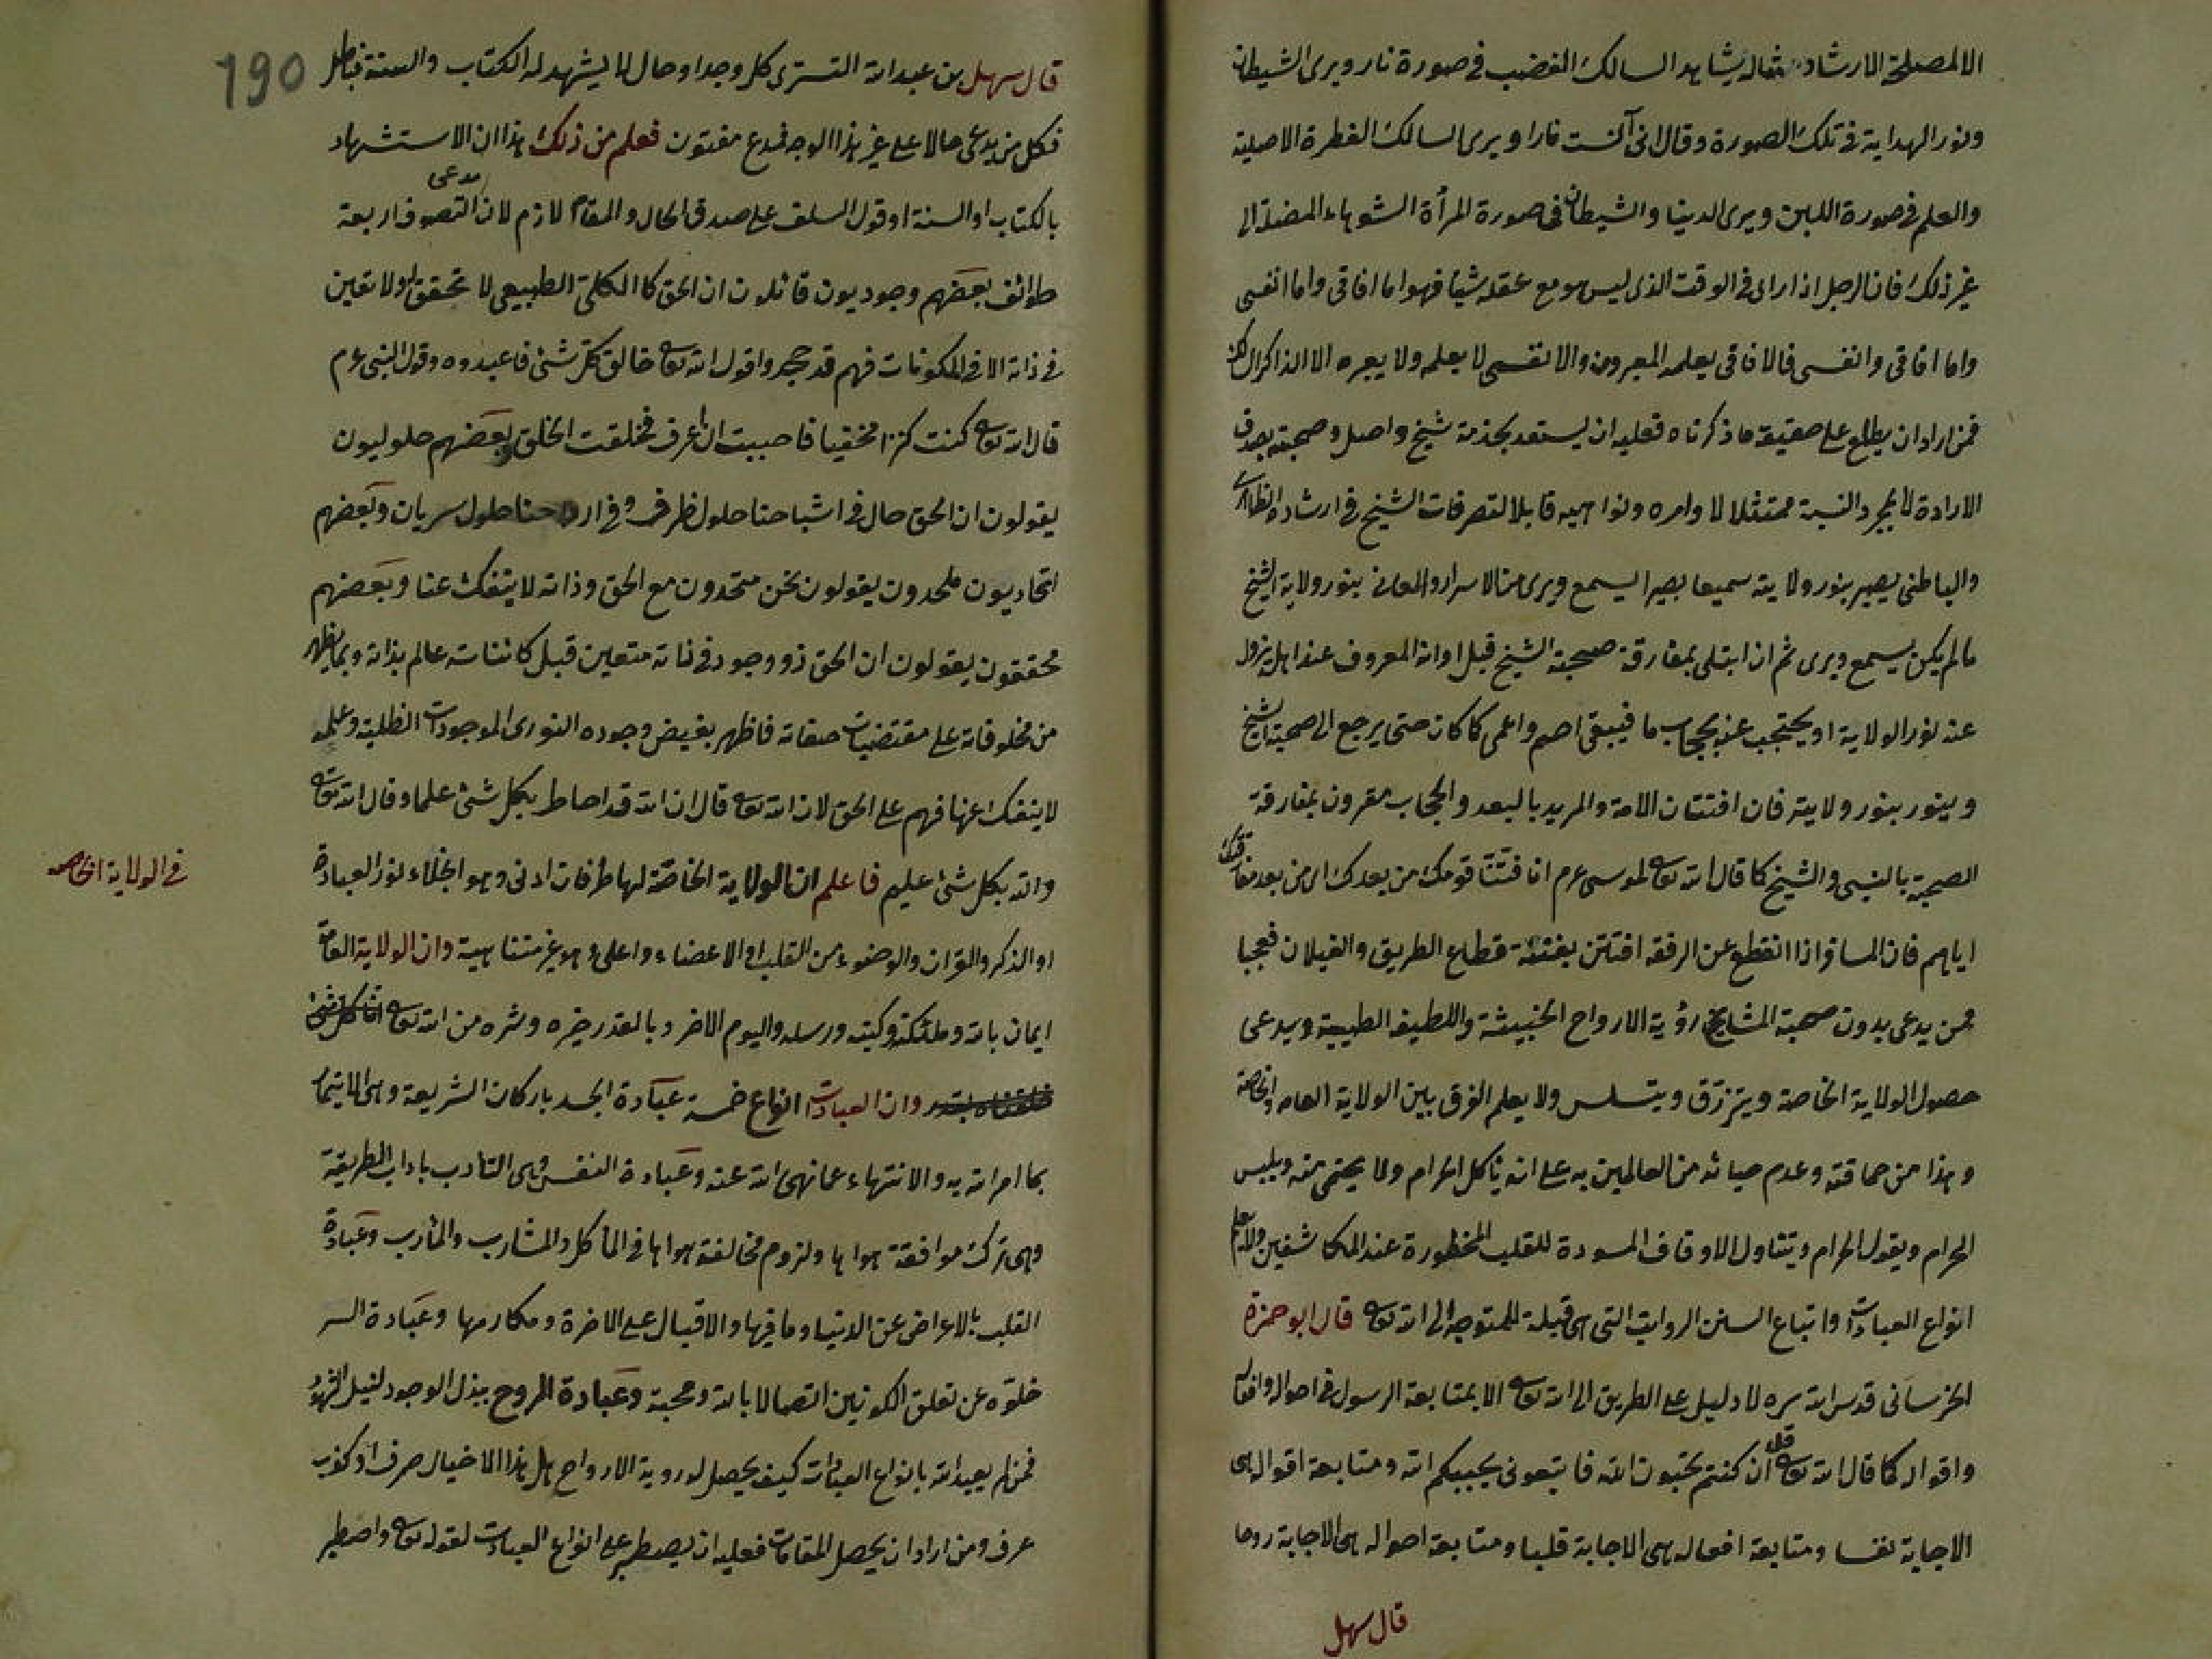 الا لمصلحة الارشاد مثاله يشاهد السالك الغضب في صورة نار ويرى الشيطان
ونور الهداية في تلك الصورة وقال اني آنست نارا ويرى السالك الفطرة الاصلية
والعلم في صورة اللبن ويرى الدنيا والشيطان في صورة المرأة الشوهاء المضلة الى
غير ذلك فان الرجل اذا راى في الوقت الذي ليس هو مع عقله شيأ فهو اما افاقى واما انفسى
واما افاقى وانفسى فالافاقى يعلمه المعبرون والانفسى لا يعلمه ولا يعبره الا الذاكر السالك
فمن اراد ان يطلع على حقيقة ما ذكرناه فعليه ان يستعد بخدمة شيخ واصل وصحبته بصدق
الارادة لا بمجرد النسبة ممتثلا لاوامره ونواهيه قابلا لتصرفات الشيخ في ارشاده الظاهرى
والباطنى يصير بنور ولايته سميعا بصيرا يسمع ويرى من الاسرار والمعاني بنور ولاية الشيخ
مالم يكن يسمع ويرى ثم ان ابتلى بمفارقة صحبة الشيخ قبل اوانه المعروف عند اهله يزول
عنه نور الولاية او يحتجب عنه بحجاب ما فيبقى اصم واعمى كما كان حتى يرجع الى صحبة الشيخ
وينور بنور ولايته فان افتتان الامة والمريد بالبعد والحجاب مقرون بمفارقة
الصحبة بالنبى والشيخ كما قال الله تعالى لموسى عرم انا فتنّا قومك من بعدك اى من بعد مفارقتك
اياهم فان المسافر اذا انقطع عن الرفقة افتتن بفتنة قطاع الطريق والغيلان فعجبا
فمن يدعى بدون صحبة المشايخ رؤية الارواح الخبيثة واللطيفة الطيبة ويدعى
حصول الولاية الخاصة ويتزرّق ويتسلس ولا يعلم الفرق بين الولاية العامه والخاصة
وهذا من حماقته وعدم حيائه من العالمين به على انه يأكل الحرام ولا يحتمى منه ويلبس
الحرام ويقول الحرام ويتناول الاوقاف المسودة للقلب المحظورة عند المكاشفين ولا يعلم
انواع العبادات واتباع السنن الرواتب التى هى قبلة للمتوجه الى الله تعالى قال ابو حمزة
الخرسانى قدس الله سره لا دليل على الطريق الى الله تعالى الا بمتابعة الرسول في احواله وافعاله
واقواله كما قال الله تعالى قل ان كنتم تحبون الله فاتبعونى يحببكم الله ومتابعة اقواله هى
الاجابة نفسا ومتابعة افعاله هى الاجابة قلبا ومتابعة احواله هى الاجابة روحا
قال سهل
190
قال سهل بن عبد الله التسترى كل وجد او حال لا يشهد له الكتاب والسنة فباطل
فكل من يدعى حالا على غير هذا الوجه فمدع مفتون فعلم من ذلك هذا ان الاستشهاد
بالكتاب او السنة او قول السلف على صدق الحال والمقام لازم لان مدعى التصوف اربعة
طوائف بعضهم وجوديون قائلون ان الحق كالكلى الطبيعى لا تحقق له ولا تعين
في ذاته الا في المكونات فهم قد جحدوا قول الله تعالى خالق كل شئ فاعبدوه وقول النبى عرم
قال الله تعالى كنت كنزا مخفيا فاحببت ان اعرف فخلقت الخلق وبعضهم حلوليون
يقولون ان الحق حال في اشباحنا حلول ظرف وفي ارواحنا حلول سريان وبعضهم
اتحاديون ملحدون يقولون نحن متحدون مع الحق وذاته لا يتفك عنا وبعضهم
محققون يقولون ان الحق ذو وجود في ذاته متعين قبل كائناته عالم بذاته وبما يظهر
من مخلوقاته على مقتضيات صفاته فاظهر بفيض وجوده النورى الموجودات الظلية وعلمه
لا ينفك عنها فهم على الحق لان الله تعالى قال ان الله قد احاط بكل شئ علما وقال الله تعالى
والله بكل شئ عليم فاعلم ان الولاية الخاصة لها طرفان ادنى وهو انجلاء نور العبادة
في الولاية الخاصه
او الذكر والقران والوضوء من القلب او الاعضاء واعلى وهو غير متناهية وان الولاية العامة
ايمان بالله وملئكته وكتبه ورسله واليوم الاخر وبالقدر خيره وشره من الله تعالى انا كل شئ
خلقناه بقدر وان العبادات انواع خمسة عبادة الجسد باركان الشريعة وهى الايتمار
بما امر الله به والانتهاء عما نهى الله عنه وعبادة النفس وهى التأدب باداب الطريقة
وهى ترك موافقة هواها ولزوم مخالفة هواها في المأكل والمشارب والمأرب وعبادة
القلب بالاعراض عن الدنيا وما فيها والاقبال على الاخرة ومكارمها وعبادة السر
خلوّه عن تعلق الكونين اتصالا بالله ومحبة وعبادة الروح ببذل الوجود لنيل الشهود
فمن لم يعبد الله بانواع العبادات كيف يحصل له روية الارواح هل هذا الا خيال صرف او كذب
صرف ومن اراد ان يحصل المقامات فعليه ان يصطبر على انواع العبادات لقوله تعالى واصطبر